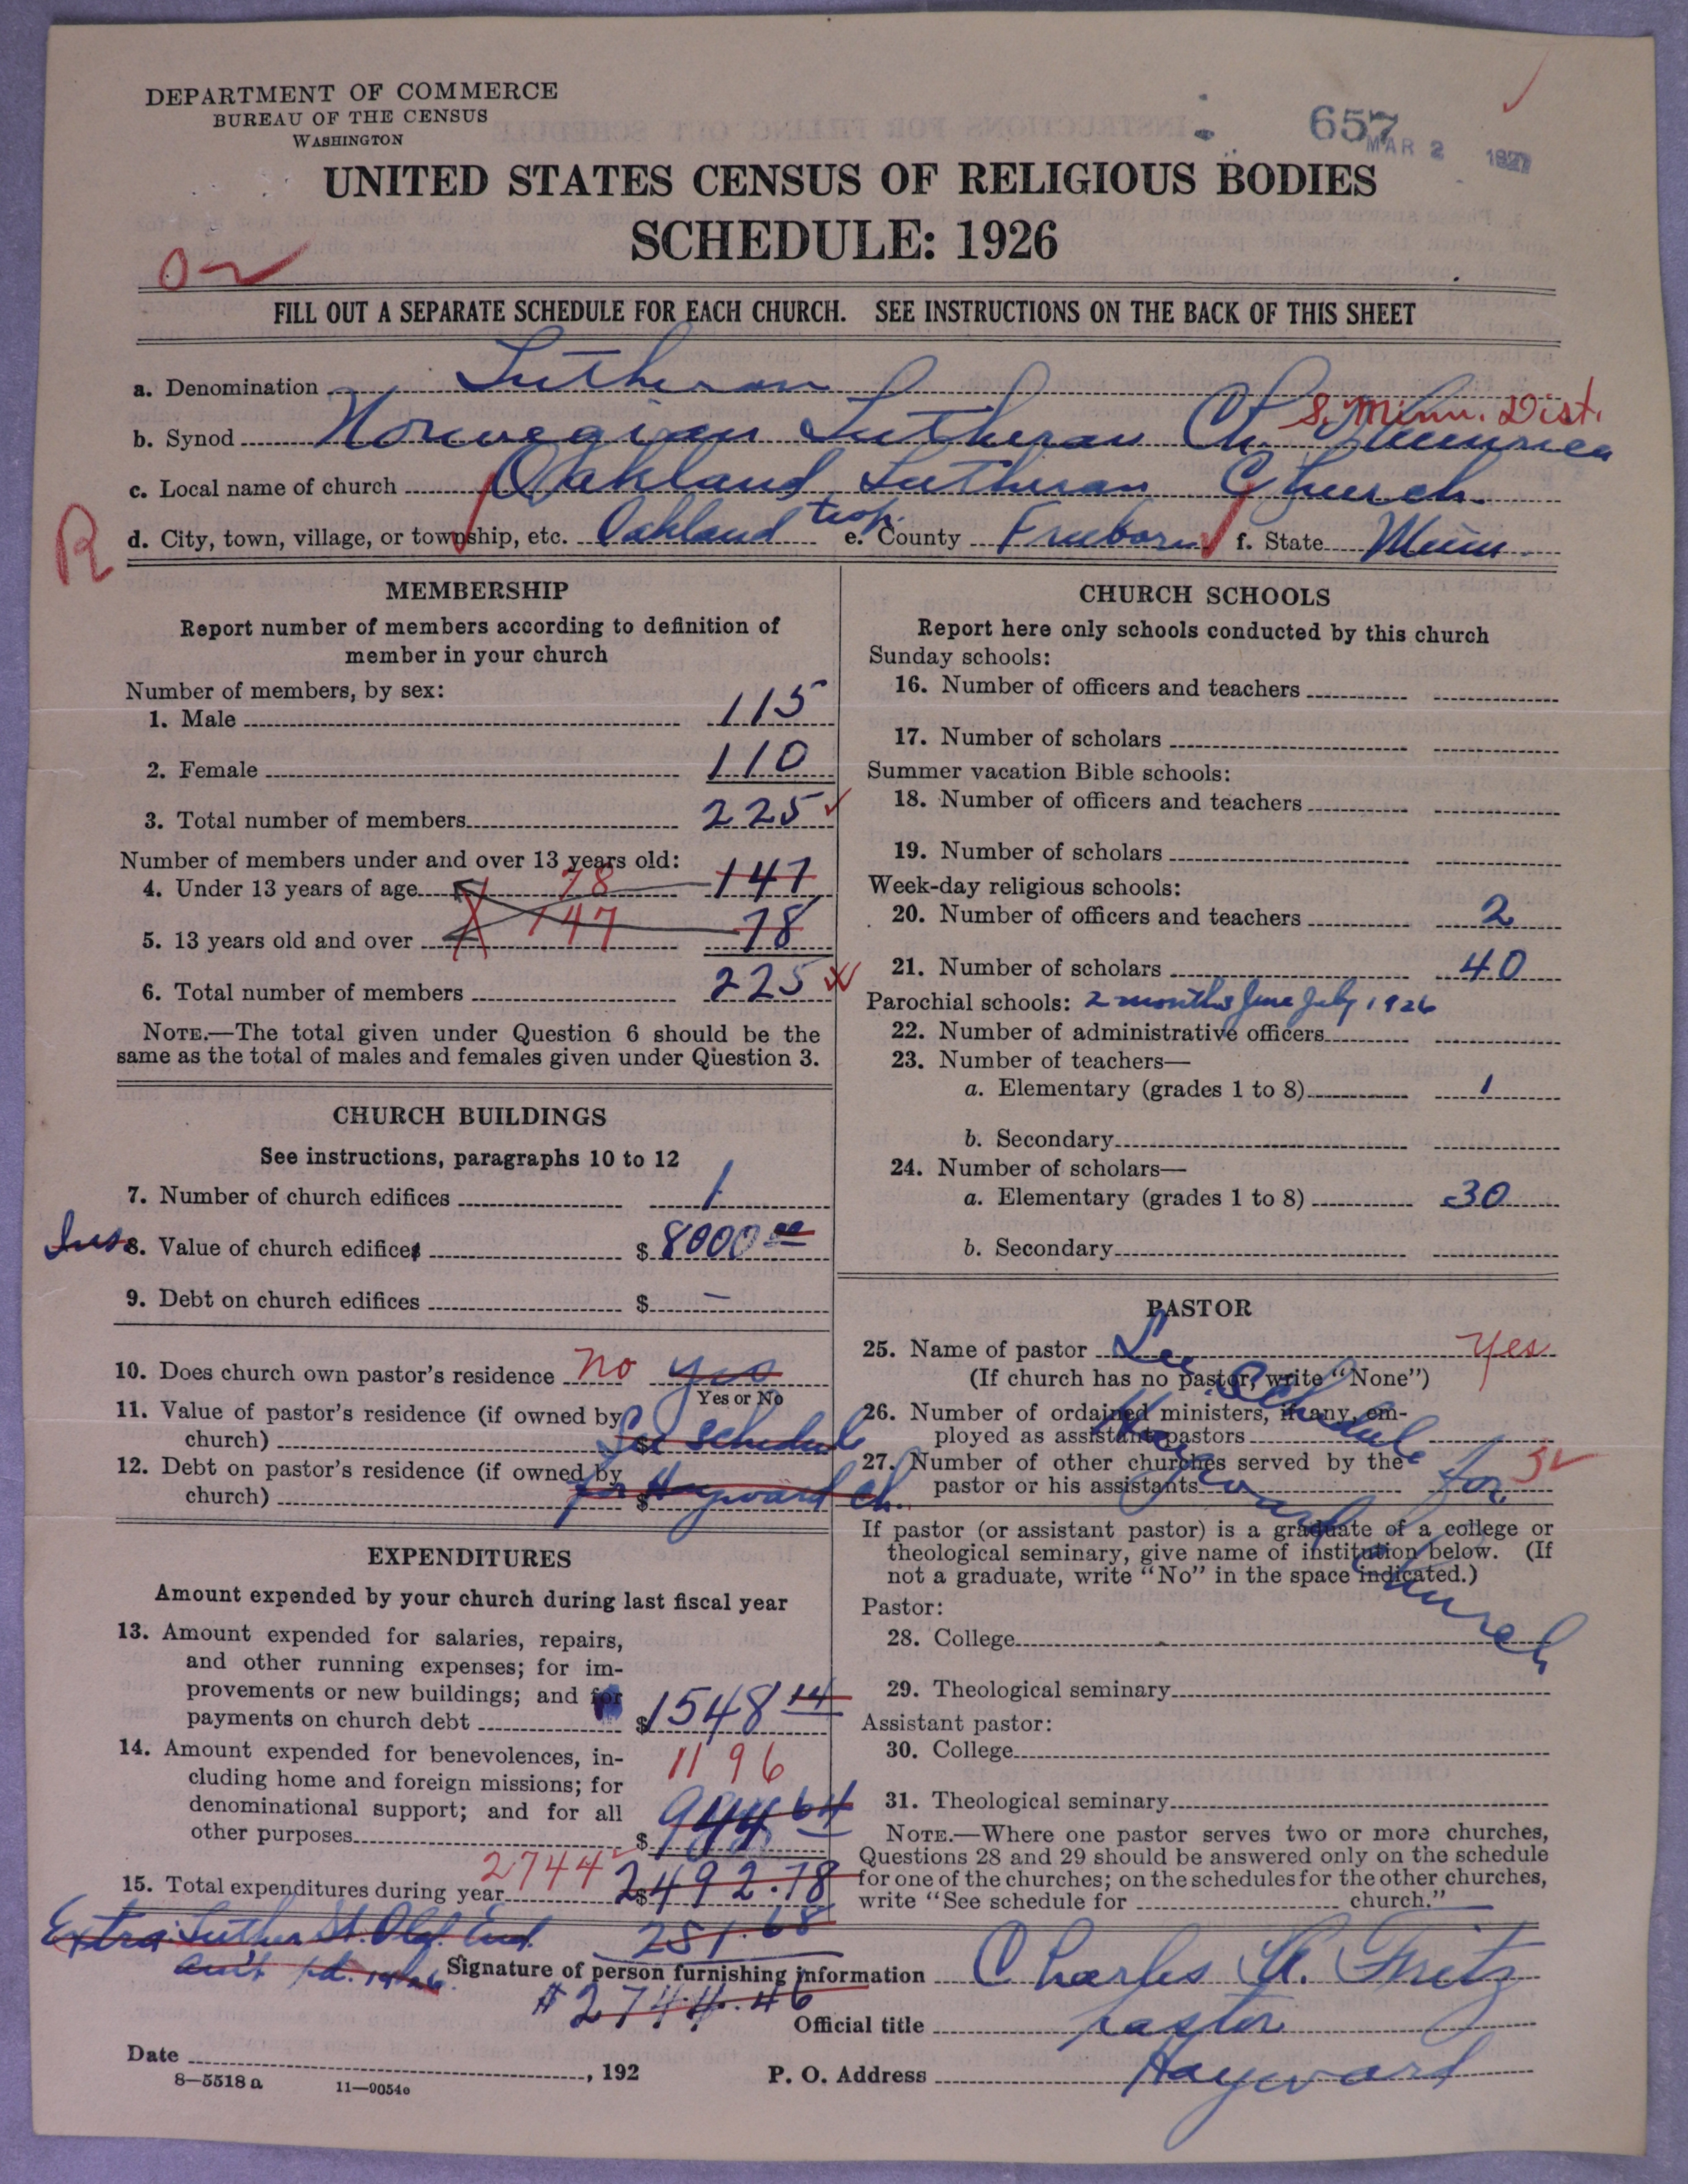 DEPARTMENT OF COMMERCE
BUREAU OF THE CENSUS
WASHINGTON
657
MAR 2 1927
UNITED STATES CENSUS OF RELIGIOUS BODIES
SCHEDULE: 1926
FILL OUT A SEPARATE SCHEDULE FOR EACH CHURCH. SEE INSTRUCTIONS ON THE BACK OF THIS SHEET
a. Denomination Lutheran
S. Minn. Dist.
b. Synod Norwegian Lutheran Ch. America
c. Local name of church Oakland Lutheran Church.
R
d. City, town, village, or township, etc. Oakland twp. e. County Freeborn f. State Minn.
MEMBERSHIP
Report number of members according to definition of
member in your church
Number of members, by sex:
1. Male 115
2. Female 110
3. Total number of members 225
Number of members under and over 13 years old:
4. Under 13 years of age 78 147
5. 13 years old and over 147 78
6. Total number of members 225
NOTE.—The total given under Question 6 should be the
same as the total of males and females given under Question 3.
CHURCH BUILDINGS
See instructions, paragraphs 10 to 12
7. Number of church edifices 1
Ins 8. Value of church edifices $ 8000 00
9. Debt on church edifices $ —
10. Does church own pastor's residence no yes
Yes or No
11. Value of pastor's residence (if owned by
church) $ See schedule
12. Debt on pastor's residence (if owned by
church) $ for Hayward Ch.
EXPENDITURES
Amount expended by your church during last fiscal year
13. Amount expended for salaries, repairs,
and other running expenses; for im-
provements or new buildings; and for
payments on church debt $ 1548 14
14. Amount expended for benevolences, in-
cluding home and foreign missions; for
denominational support; and for all
other purposes $ 944 64
1196
15. Total expenditures during year 2744 $ 2492.78
Extra: Luther St. Olaf End. 251.68
am't pd. 1926
$2744.46
CHURCH SCHOOLS
Report here only schools conducted by this church
Sunday schools:
16. Number of officers and teachers
17. Number of scholars
Summer vacation Bible schools:
18. Number of officers and teachers
19. Number of scholars
Week-day religious schools:
20. Number of officers and teachers 2
21. Number of scholars 40
Parochial schools: 2 months June July 1926
22. Number of administrative officers
23. Number of teachers—
a. Elementary (grades 1 to 8) 1
b. Secondary
24. Number of scholars—
a. Elementary (grades 1 to 8) 30
b. Secondary
PASTOR
25. Name of pastor See Schedule for Hayward Church yes
(If church has no pastor, write "None")
26. Number of ordained ministers, if any, em-
ployed as assistant pastors
27. Number of other churches served by the
pastor or his assistants 3
If pastor (or assistant pastor) is a graduate of a college or
theological seminary, give name of institution below. (If
not a graduate, write "No" in the space indicated.)
Pastor:
28. College
29. Theological seminary
Assistant pastor:
30. College
31. Theological seminary
NOTE.—Where one pastor serves two or more churches,
Questions 28 and 29 should be answered only on the schedule
for one of the churches; on the schedules for the other churches,
write "See schedule for church."
Signature of person furnishing information Charles A. Fritz
Official title pastor
Date , 192
P. O. Address Hayward
8—5518 a 11—9054e